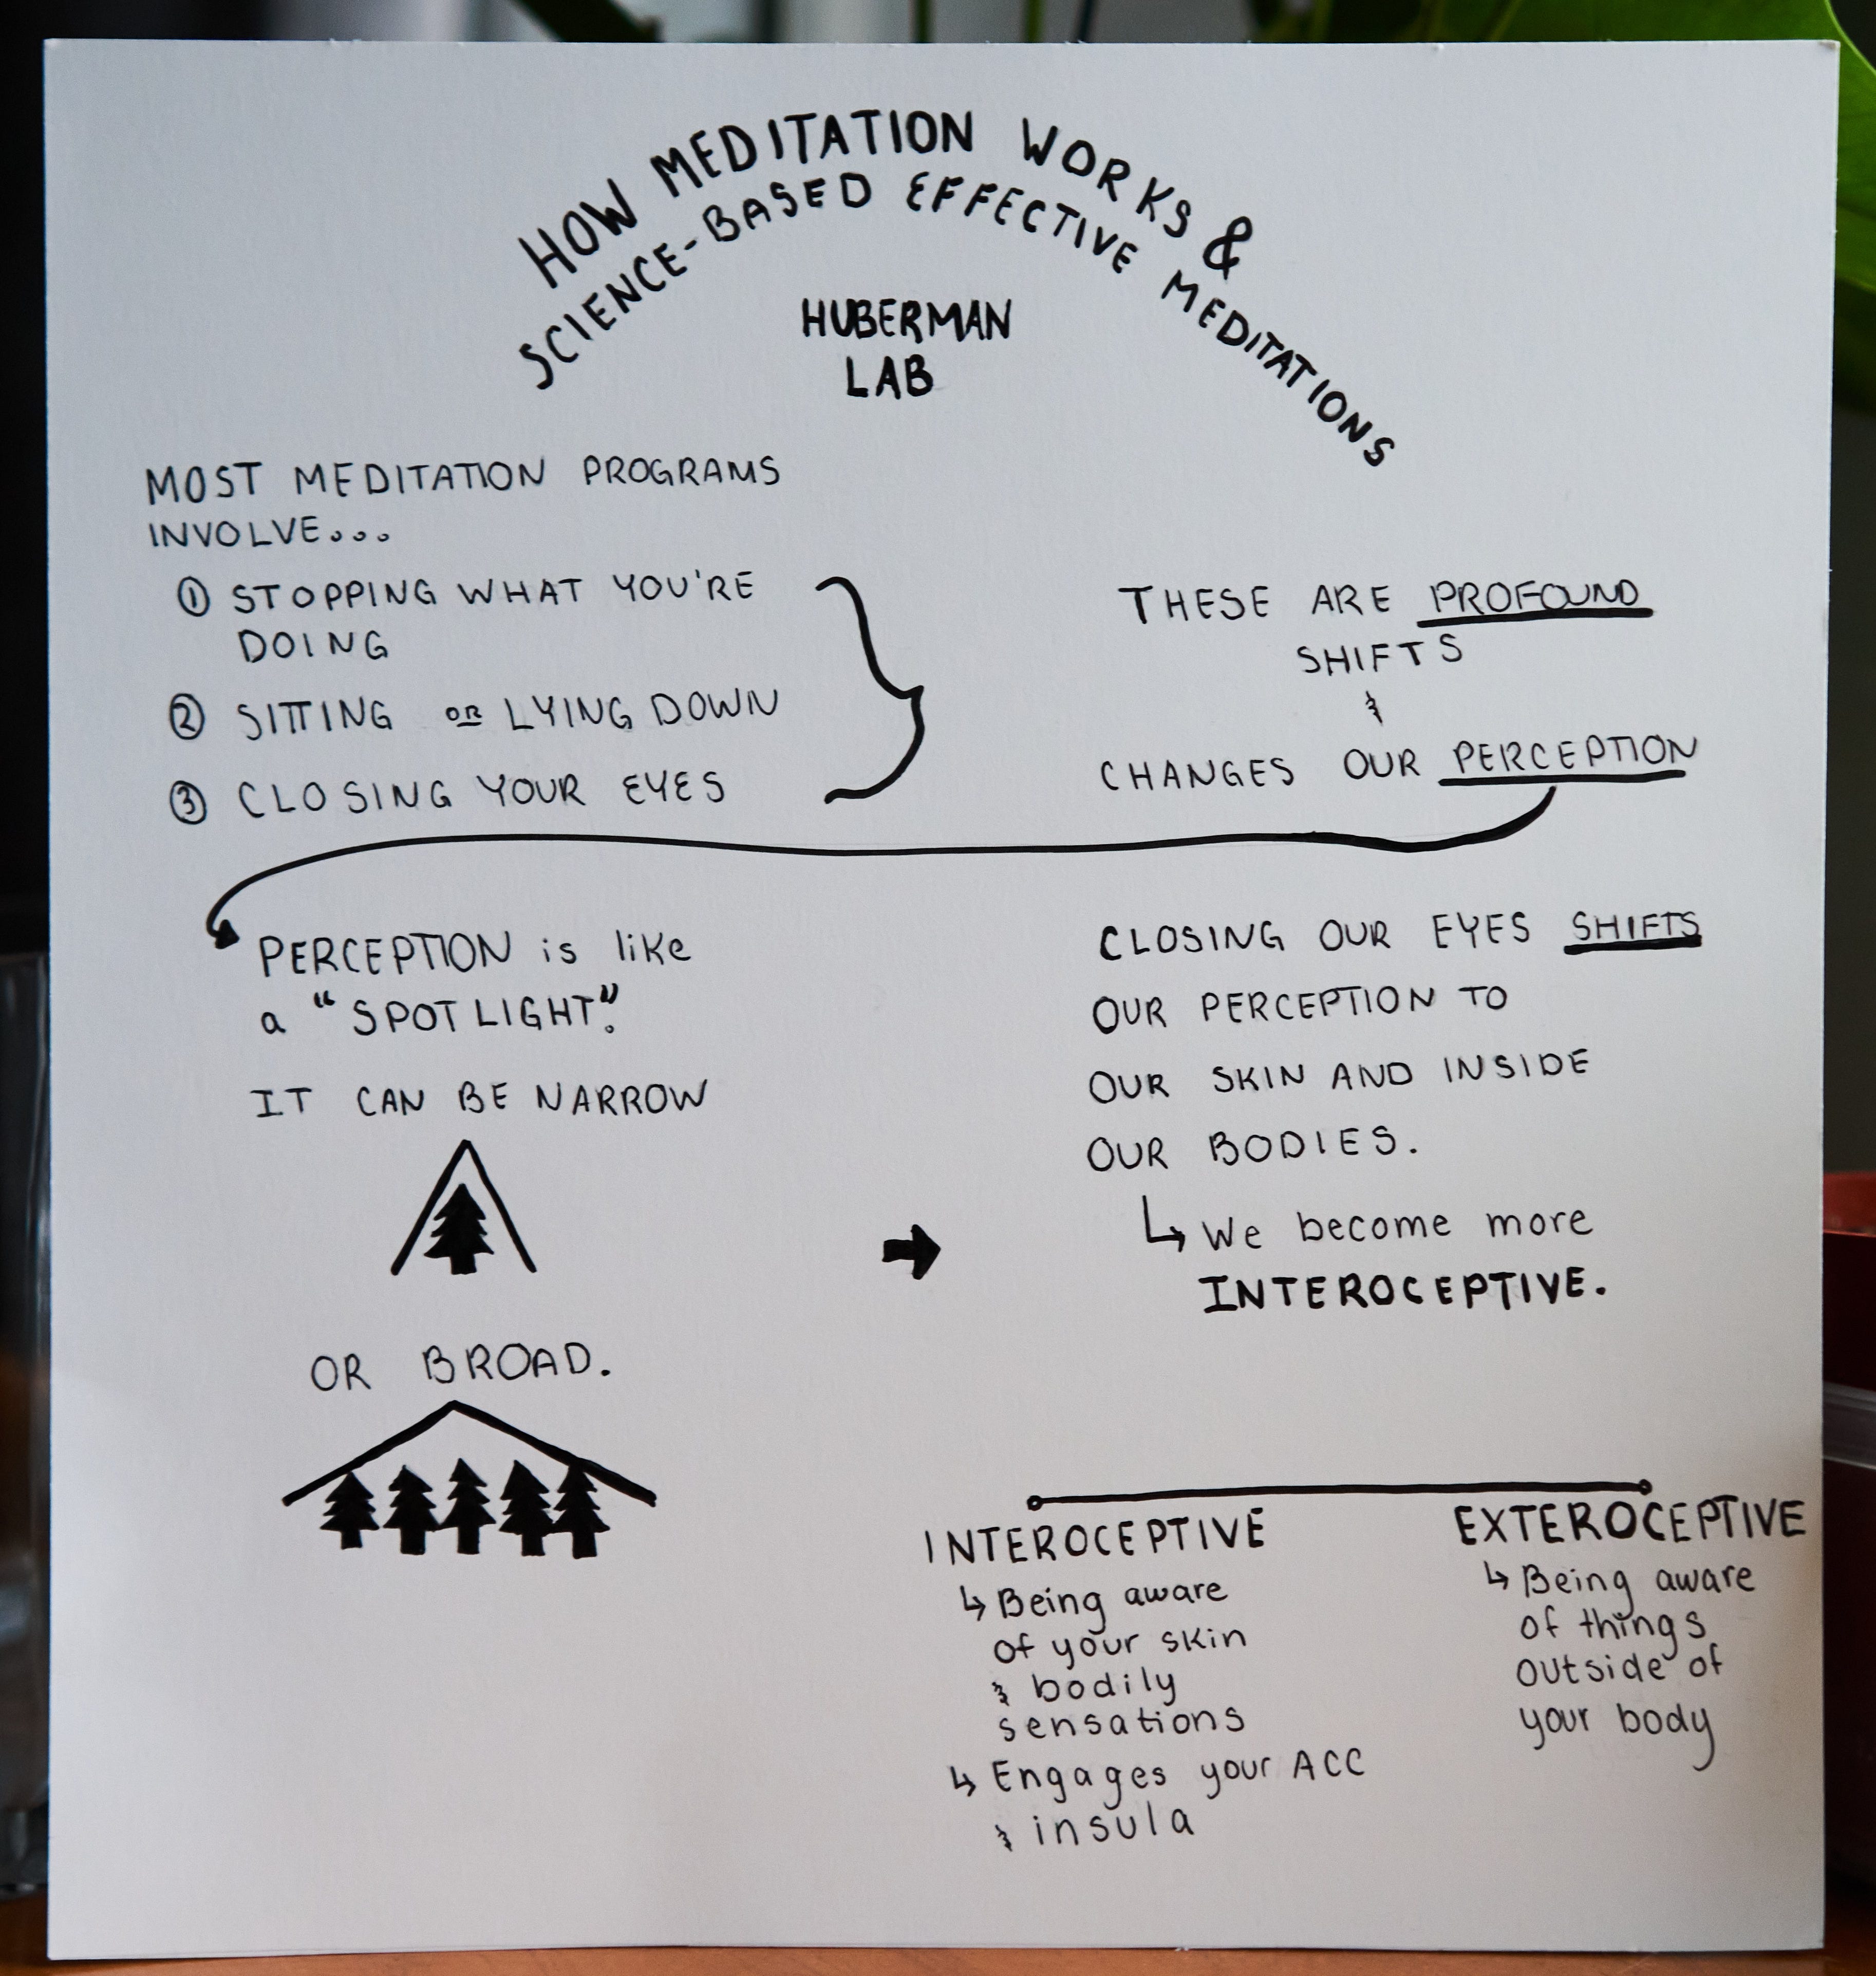 HOW MEDITATION WORKS &
SCIENCE-BASED EFFECTIVE MEDITATIONS
HUBERMAN
LAB
MOST MEDITATION PROGRAMS
INVOLVE...
① STOPPING WHAT YOU'RE
DOING
② SITTING OR LYING DOWN
③ CLOSING YOUR EYES
THESE ARE PROFOUND
SHIFTS
&
CHANGES OUR PERCEPTION
PERCEPTION is like
a "SPOTLIGHT".
IT CAN BE NARROW
OR BROAD.
CLOSING OUR EYES SHIFTS
OUR PERCEPTION TO
OUR SKIN AND INSIDE
OUR BODIES.
↳ We become more
INTEROCEPTIVE.
INTEROCEPTIVE
↳ Being aware
of your skin
& bodily
sensations
↳ Engages your ACC
& insula
EXTEROCEPTIVE
↳ Being aware
of things
outside of
your body